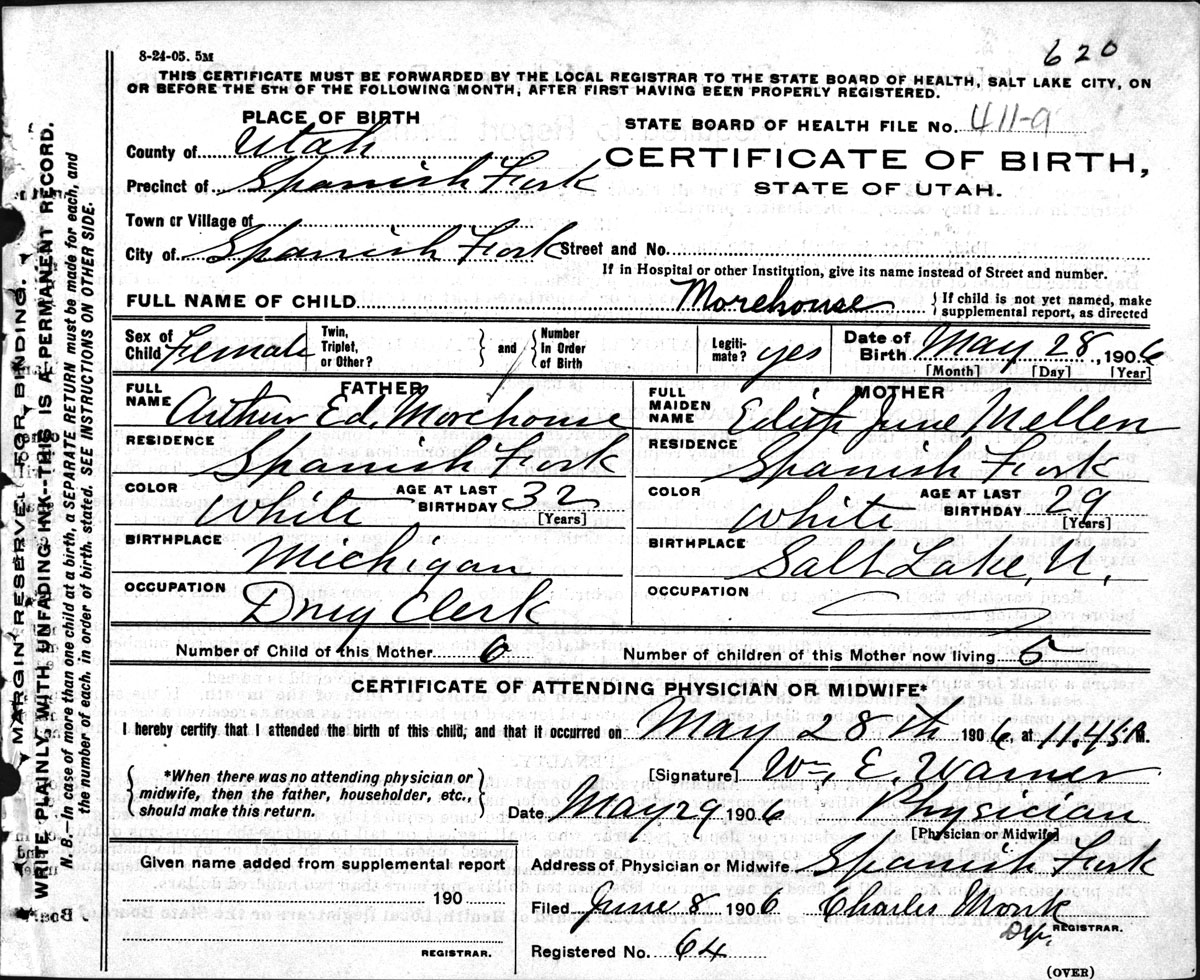 620
8-24-05. 5M
THIS CERTIFICATE MUST BE FORWARDED BY THE LOCAL REGISTRAR TO THE STATE BOARD OF HEALTH, SALT LAKE CITY, ON
OR BEFORE THE 5TH OF THE FOLLOWING MONTH, AFTER FIRST HAVING BEEN PROPERLY REGISTERED.
PLACE OF BIRTH
STATE BOARD OF HEALTH FILE No. 411-9
County of Utah
CERTIFICATE OF BIRTH,
STATE OF UTAH.
Precinct of Spanish Fork
Town or Village of
City of Spanish Fork Street and No.
If in Hospital or other Institution, give its name instead of Street and number.
FULL NAME OF CHILD Morehouse { If child is not yet named, make
supplemental report, as directed
Sex of Child Female Twin, Triplet, or Other? } and { Number In Order of Birth Legiti-mate? yes Date of Birth May 28, 1906
[Month] [Day] [Year]
FATHER
FULL NAME Arthur Ed. Morehouse
RESIDENCE Spanish Fork
COLOR White AGE AT LAST BIRTHDAY 32
[Years]
BIRTHPLACE Michigan
OCCUPATION Drug Clerk
MOTHER
FULL MAIDEN NAME Edith June Mellen
RESIDENCE Spanish Fork
COLOR White AGE AT LAST BIRTHDAY 29
[Years]
BIRTHPLACE Salt Lake, U.
OCCUPATION
Number of Child of this Mother 6 Number of children of this Mother now living 5
CERTIFICATE OF ATTENDING PHYSICIAN OR MIDWIFE*
I hereby certify that I attended the birth of this child, and that it occurred on May 28th 1906, at 11.45 M.
*When there was no attending physician or
midwife, then the father, householder, etc.,
should make this return.
[Signature] Wm. E. Warner
Date May 29 1906 Physician
[Physician or Midwife]
Given name added from supplemental report
190
REGISTRAR.
Address of Physician or Midwife Spanish Fork
Filed June 8 1906 Charles Monk
Dep. REGISTRAR.
Registered No. 64
(OVER)
MARGIN RESERVED FOR BINDING.
WRITE PLAINLY WITH UNFADING INK--THIS IS A PERMANENT RECORD.
N. B.--In case of more than one child at a birth, a SEPARATE RETURN must be made for each, and
the number of each, in order of birth, stated. SEE INSTRUCTIONS ON OTHER SIDE.